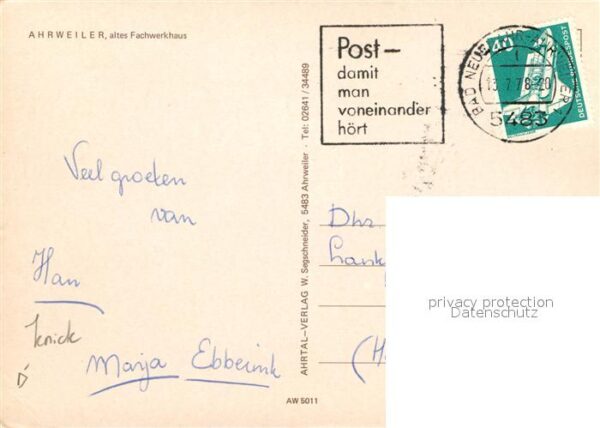 AHRWEILER, altes Fachwerkhaus
Veel groeten
van
Han
knick
Marja Ebberink
AHRTAL–VERLAG W. Segschneider, 5483 Ahrweiler · Tel: 02641/34489
AW 5011
Post–
damit
man
voneinander
hört
BAD NEUENAHR-AHRWEILER
13.7.78-20
5483
40
DEUTSCHE BUNDESPOST
Dhr
privacy protection
Datenschutz